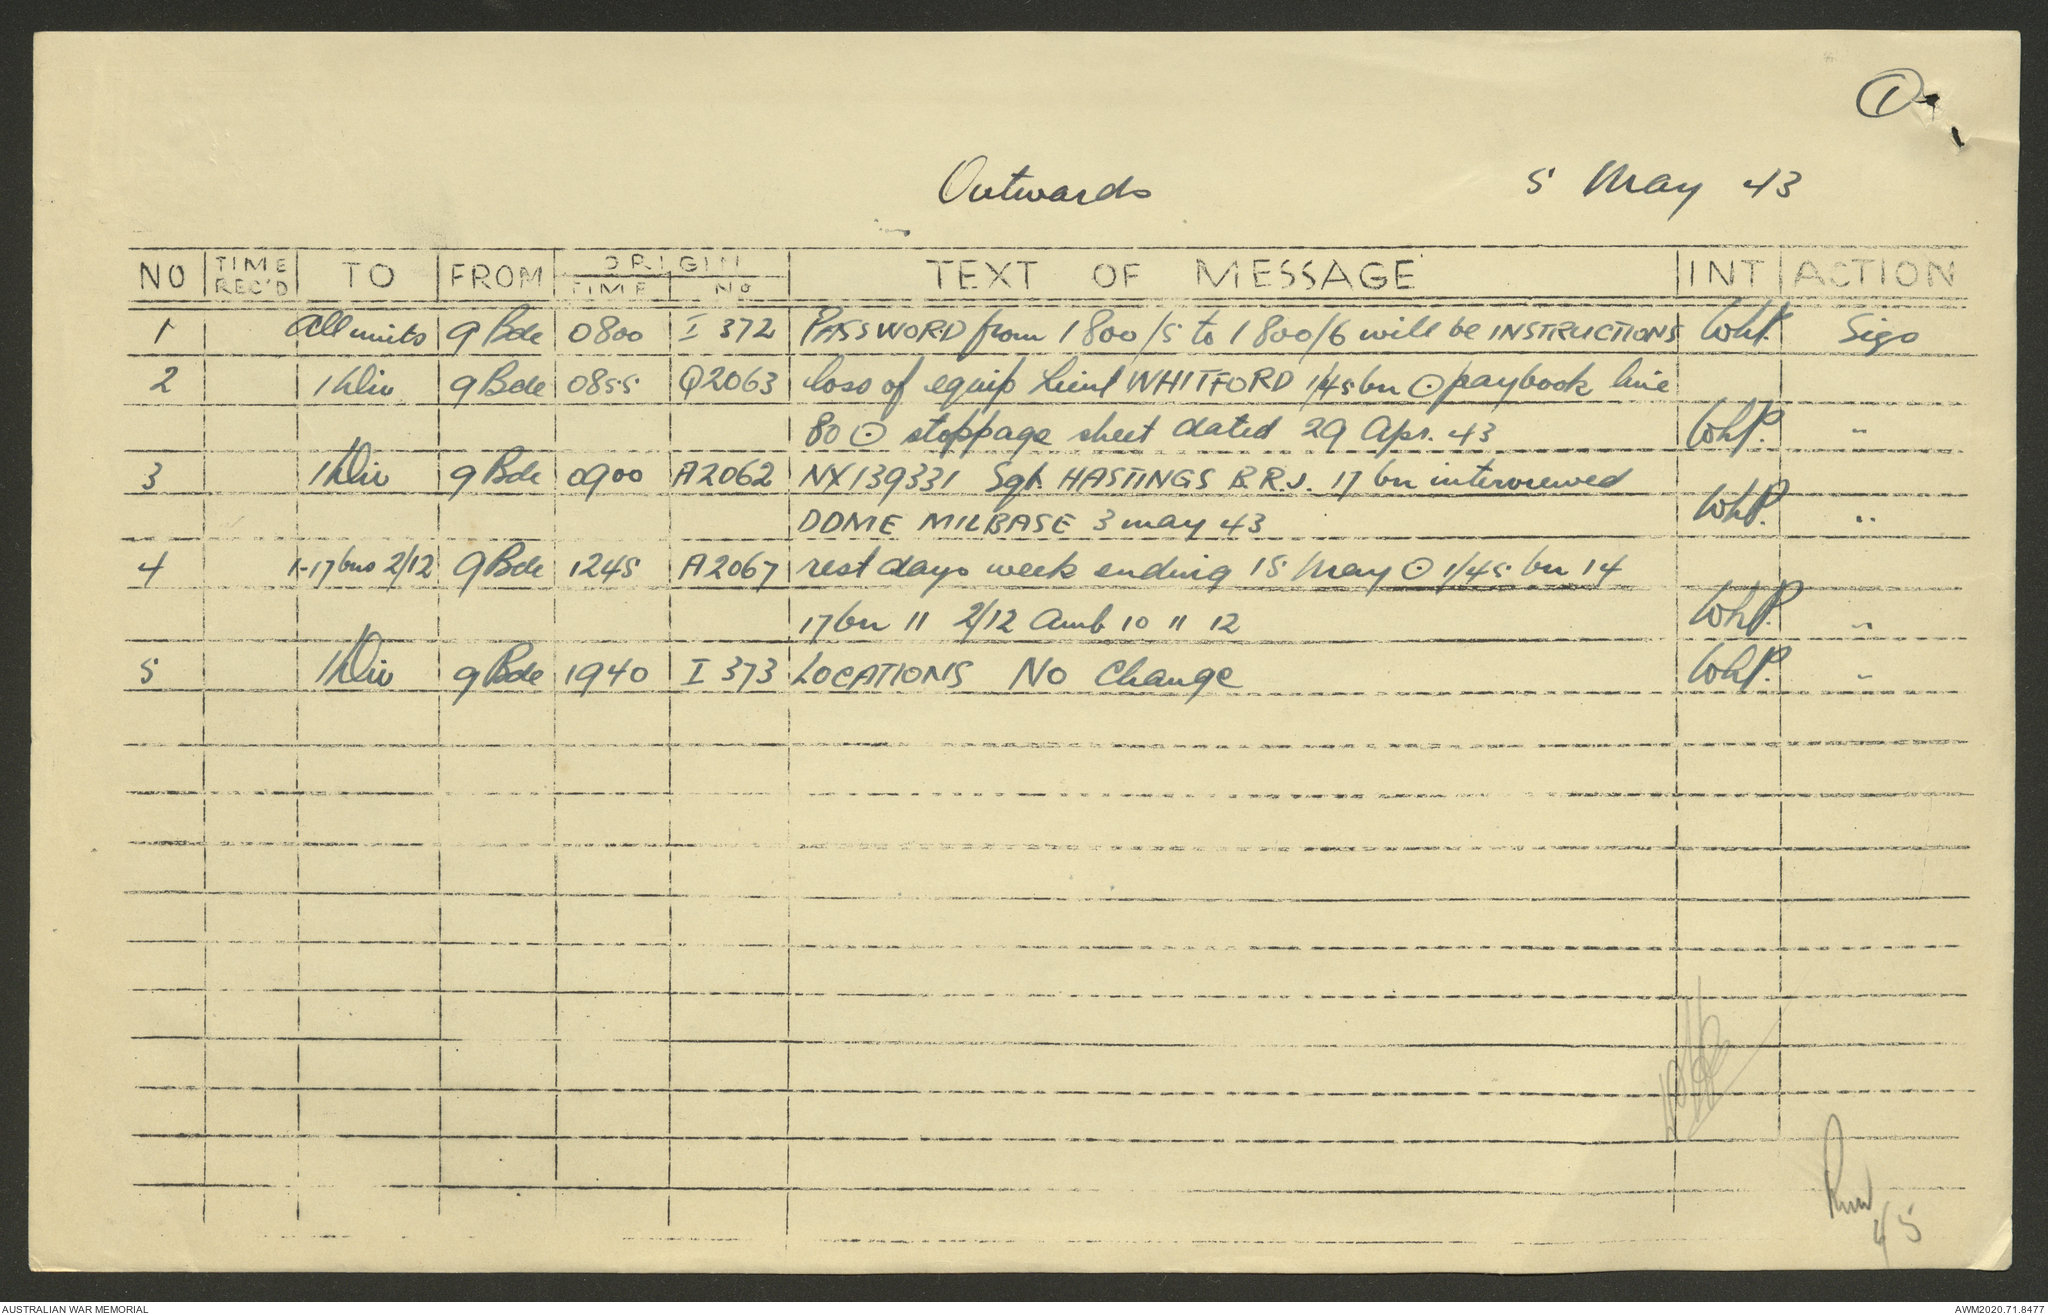 ①
Outwards 5 May 43
NO TIME REC'D TO FROM ORIGIN TIME No TEXT OF MESSAGE INT ACTION
1 All units 9 Bde 0800 I 372 PASSWORD from 1800/5 to 1800/6 will be INSTRUCTIONS WhP. Sigs
2 1 Div 9 Bde 0855 Q2063 loss of equip Lieut WHITFORD 1/45 bn ⊙ paybook line
80 ⊙ stoppage sheet dated 29 Apr. 43 WhP. "
3 1 Div 9 Bde 0900 A2062 NX139331 Sgt HASTINGS B.R.J. 17 bn interviewed
DOME MILBASE 3 may 43 WhP. "
4 1-17 bns 2/12 9 Bde 1245 A2067 rest days week ending 15 May ⊙ 1/45 bn 14
17 bn 11 2/12 Amb 10 11 12 WhP. "
5 1 Div 9 Bde 1940 I 373 LOCATIONS No Change WhP. "
AUSTRALIAN WAR MEMORIAL AWM2020.71.8477